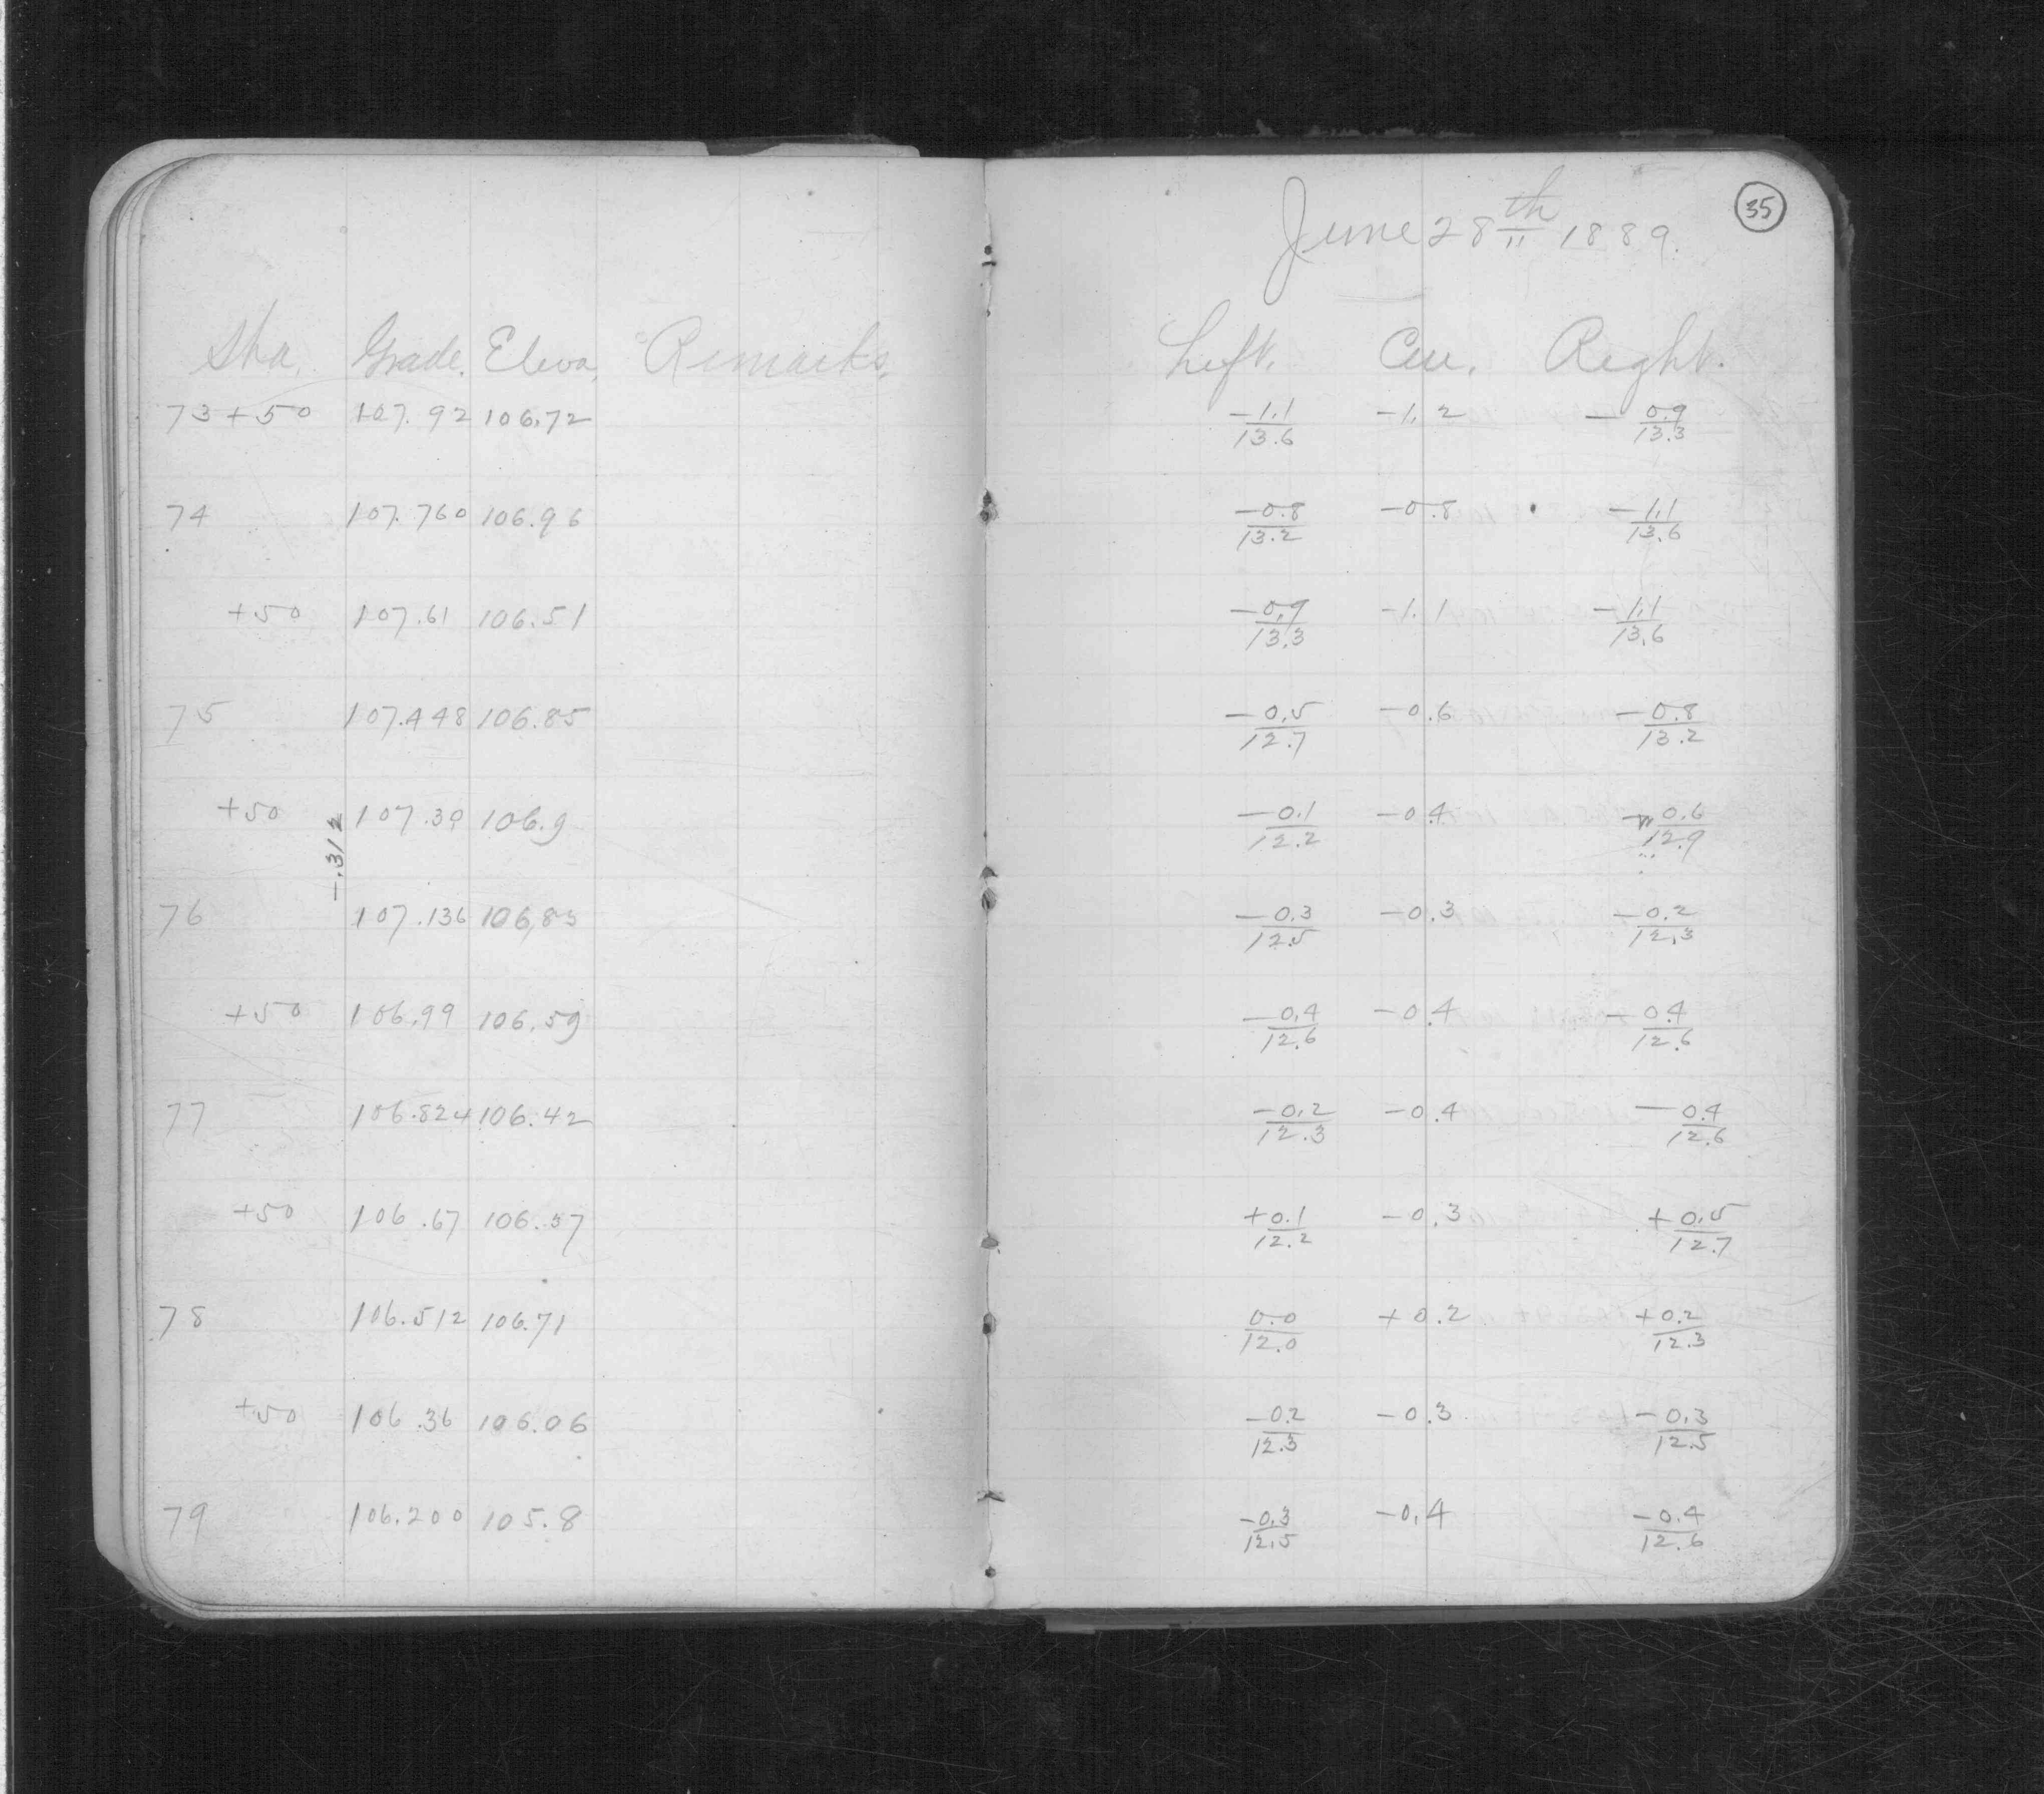 35
June 28th 1889.
Sta. Grade. Eleva. Remarks. Left. Cen. Right.
73+50 107.92 106.72 -1.1/13.6 -1.2 -0.9/13.3
74 107.760 106.96 -0.8/13.2 -0.8 -1.1/13.6
+50 107.61 106.51 -0.9/13.3 -1.1 -1.1/13.6
75 107.448 106.85 -0.5/12.7 -0.6 -0.8/13.2
+50 107.30 106.9 -0.1/12.2 -0.4 -0.6/12.9
-.312
76 107.136 106.83 -0.3/12.5 -0.3 -0.2/12.3
+50 106.99 106.59 -0.4/12.6 -0.4 -0.4/12.6
77 106.824 106.42 -0.2/12.3 -0.4 -0.4/12.6
+50 106.67 106.37 +0.1/12.2 -0.3 +0.5/12.7
78 106.512 106.71 0.0/12.0 +0.2 +0.2/12.3
+50 106.36 106.06 -0.2/12.3 -0.3 -0.3/12.5
79 106.200 105.8 -0.3/12.5 -0.4 -0.4/12.6